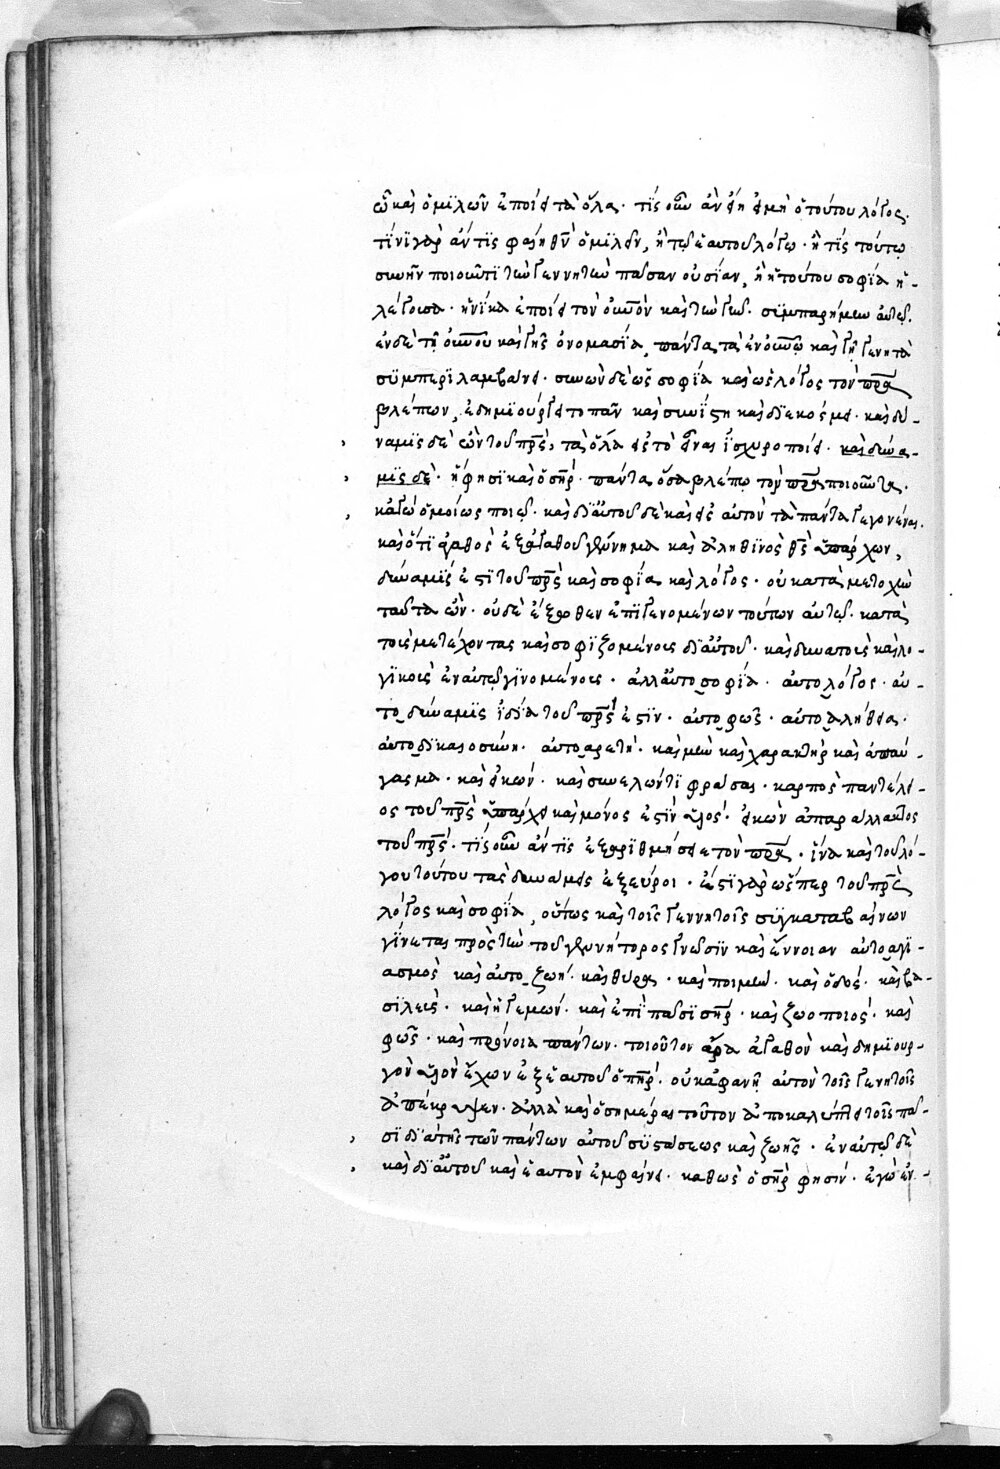 ᾧ καὶ ὁμιλῶν ἐποίει τὰ ὅλα · τίς οὖν ἂν εἴη εἰ μὴ ὁ τούτου λόγος.
τίνι γὰρ ἄν τις φαίη θν̄ ὁμιλεῖν, ἢ τῷ ἑαυτοῦ λόγῳ · ἢ τίς τούτῳ
συνῆν ποιοῦντι τὴν γεννητὴν πᾶσαν οὐσίαν, ἢ ἡ τούτου σοφία ἡ
λέγουσα · ἡνίκα ἐποίει τὸν οὐνὸν καὶ τὴν γῆν · συμπαρήμην αὐτῷ.
ἐν δὲ τῇ οὐνοῦ καὶ γῆς ὀνομασίᾳ, πάντα τὰ ἐν οὐνῷ καὶ γῇ γενητὰ
συμπεριλαμβάνει · συνὼν δὲ ὡς σοφία καὶ ὡς λόγος τὸν πρ̄α
βλέπων, ἐδημιούργει τὸ πᾶν καὶ συνίστη καὶ διεκόσμει · καὶ δύ-
ναμις δὲ ὢν τοῦ πρ̄ς, τὰ ὅλα εἰς τὸ εἶναι ἰσχυροποίει · καὶ δύνα-
μις δὲ · ᾗ φησὶ καὶ ὁ σηρ̄ · πάντα ὅσα βλέπω τὸν πρ̄α ποιοῦντα ·
κἀγὼ ὁμοίως ποιῶ · καὶ δι' αὐτοῦ δὲ καὶ εἰς αὐτὸν τὰ πάντα γεγονέναι.
καὶ ὅτι ἀγαθὸς ἐξ ἀγαθοῦ γέννημα καὶ ἀληθινὸς θς̄ ὑπάρχων,
δύναμίς ἐστι τοῦ πρ̄ς καὶ σοφία καὶ λόγος · οὐ κατὰ μετοχὴν
ταῦτα ὢν · οὐδὲ ἔξωθεν ἐπιγενομένων τούτων αὐτῷ · κατὰ
τοὺς μετέχοντας καὶ σοφιζομένους δι' αὐτοῦ · καὶ δυνατοὺς καὶ λο-
γικοὺς ἐν αὐτῷ γινομένους · ἀλλ' αὐτοσοφία · αὐτολόγος · αὐ-
τοδύναμις ἰδία τοῦ πρ̄ς ἐστιν · αὐτοφῶς · αὐτοαλήθεια ·
αὐτοδικαιοσύνη · αὐτοαρετή · καὶ μὴν καὶ χαρακτὴρ καὶ ἀπαύ-
γασμα · καὶ εἰκών · καὶ συνελόντι φράσαι · καρπὸς παντέλει-
ος τοῦ πρ̄ς ὑπάρχει καὶ μόνος ἐστὶν υἱός · εἰκὼν ἀπαράλλακτος
τοῦ πρ̄ς · τίς οὖν ἄν τις ἐξαριθμήσειε τὸν πρ̄α · ἵνα καὶ τοῦ λό-
γου τούτου τὰς δυνάμεις ἐξεύροι · ἔστι γὰρ ὥσπερ τοῦ πρ̄ς
λόγος καὶ σοφία, οὕτως καὶ τοῖς γεννητοῖς συγκαταβαίνων
γίνεται πρὸς τὴν τοῦ γεννήτορος γνῶσιν καὶ ἔννοιαν αὐτοαγι-
ασμὸς καὶ αὐτοζωή · καὶ θύρα · καὶ ποιμὴν · καὶ ὁδός · καὶ βα-
σιλεύς · καὶ ἡγεμών · καὶ ἐπὶ πᾶσι σηρ̄ · καὶ ζωοποιός · καὶ
φῶς · καὶ πρόνοια πάντων · τοιοῦτον ἄρα ἀγαθὸν καὶ δημιουρ-
γὸν υἱὸν ἔχων ἐξ ἑαυτοῦ ὁ πηρ̄ · οὐκ ἀφανῆ αὐτὸν τοῖς γενητοῖς
ἀπέκρυψεν · ἀλλὰ καὶ ὁσημέραι τοῦτον ἀποκαλύπτει τοῖς πᾶ-
σι διὰ τῆς τῶν πάντων αὐτοῦ συστάσεως καὶ ζωῆς · ἐν αὐτῷ δὲ
καὶ δι' αὐτοῦ καὶ ἑαυτὸν ἐμφαίνει · καθὼς ὁ σηρ̄ φησίν · ἐγὼ ἐν